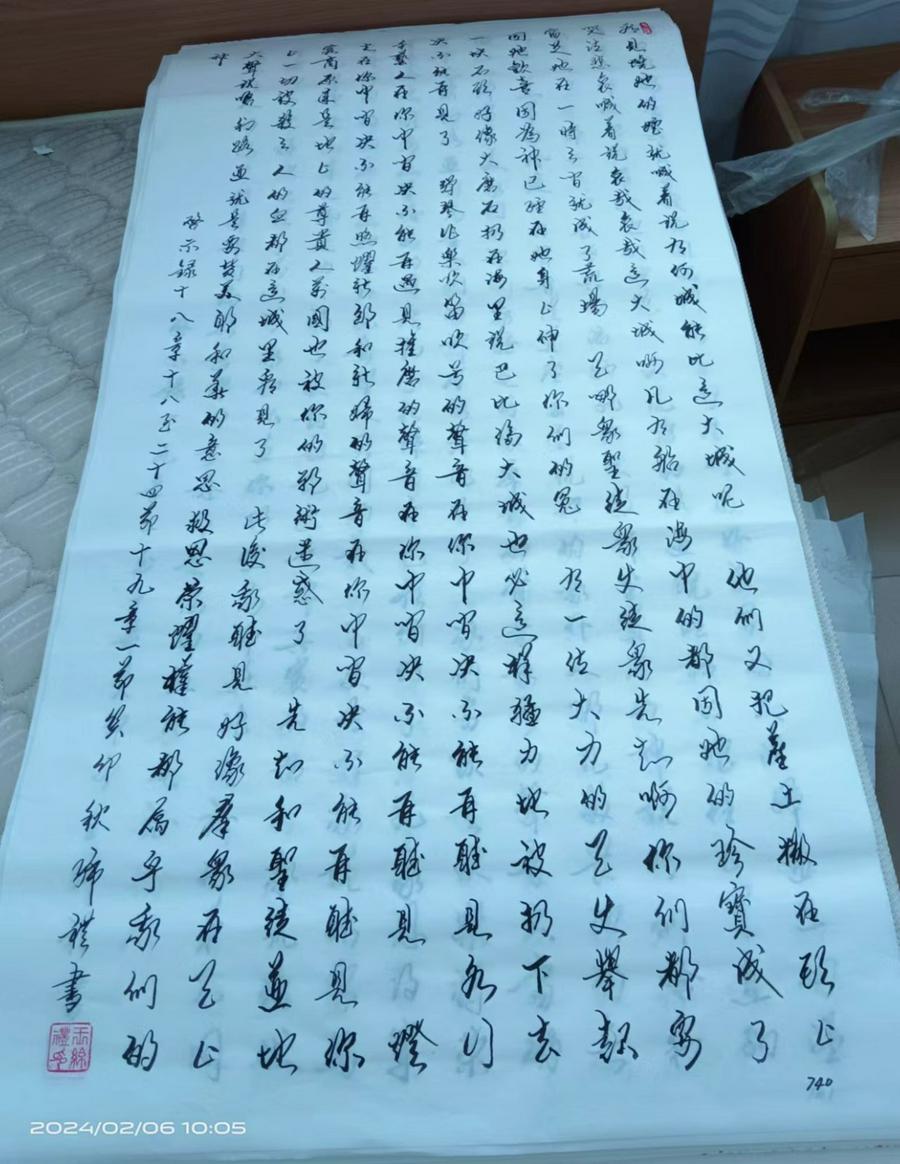 看見燒她的煙就喊着說有何城能比這大城呢 他们又把塵土撒在頭上
哭泣悲哀喊着說哀哉哀哉這大城啊凡有船在海中的都因她的珍寶成了
富足她在一時之間就成了荒場 天哪衆聖徒衆使徒衆先知啊你们都要
因她歡喜因為神已經在她身上伸了你们的冤 有一位大力的天使舉起
一块石頭好像大磨石扔在海里說巴比倫大城也必這樣猛力地被扔下去
决不能再見了 彈琴作樂吹笛吹号的聲音在你中間决不能再聽見各行
手藝人在你中間决不能再遇見推磨的聲音在你中間决不能再聽見燈
光在你中間决不能再照耀新郎和新婦的聲音在你中間决不能再聽見你
客商原来是地上的尊貴人萬國也被你的邪術迷惑了 先知和聖徒並地
上一切被殺之人的血都在這城里看見了 此後我聽見好像羣衆在天上
大聲說哈利路亞就是要讚美耶和華的意思救恩榮耀權能都屬乎我们的
神
啓示録十八章十八至二十四節十九章一節癸卯秋 禮書
740
2024/02/06 10:05